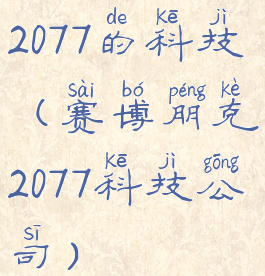 de kē jì
2077的科技
sài bó péng kè
（赛博朋克
kē jì gōng
2077科技公
sī
司）